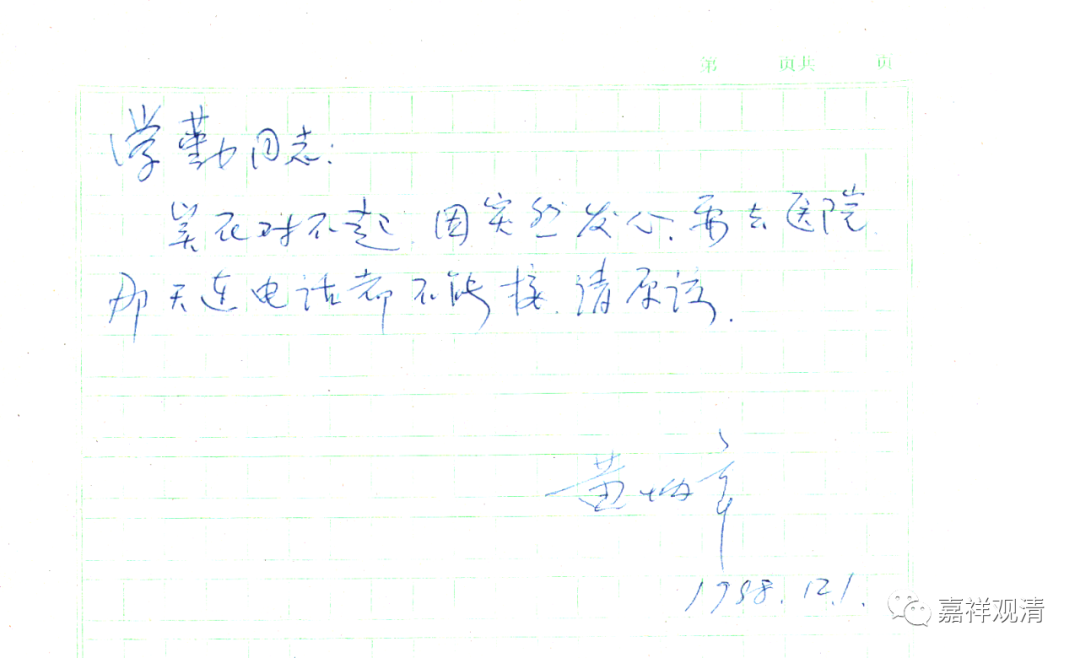 第 页共 页
学勤同志:
实在对不起,因突然发心,要去医院,
那天连电话都不能接,请原谅.
黄
1998.12.1.
嘉祥观清